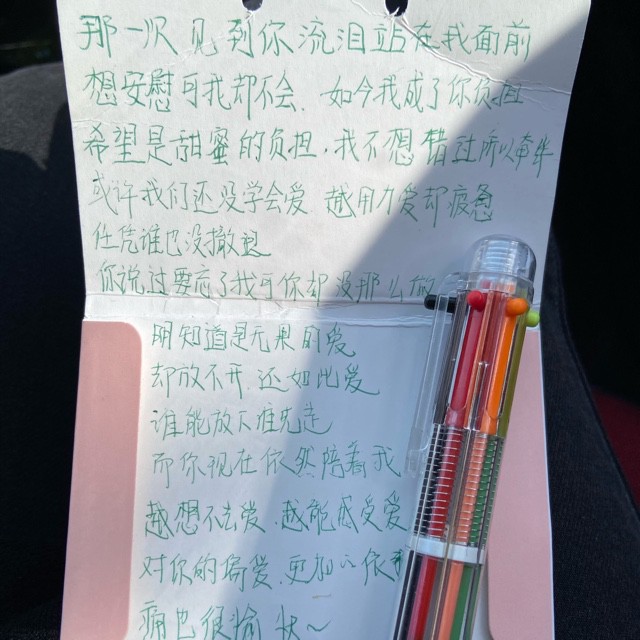 那一次见到你流泪站在我面前
想安慰可我却不会.如今我成了你负担
希望是甜蜜的负担.我不想错过所以牵绊
或许我们还没学会爱 越用力爱却疲惫
任凭谁也没撤退
你说过要忘 我可你却没那么做
明知道是无果的爱
却放不开 还如此爱
谁能放下谁先走
而你现在依然陪着我
越想不去爱.越能感受爱
对你的偏爱.更加心
痛也很愉快~